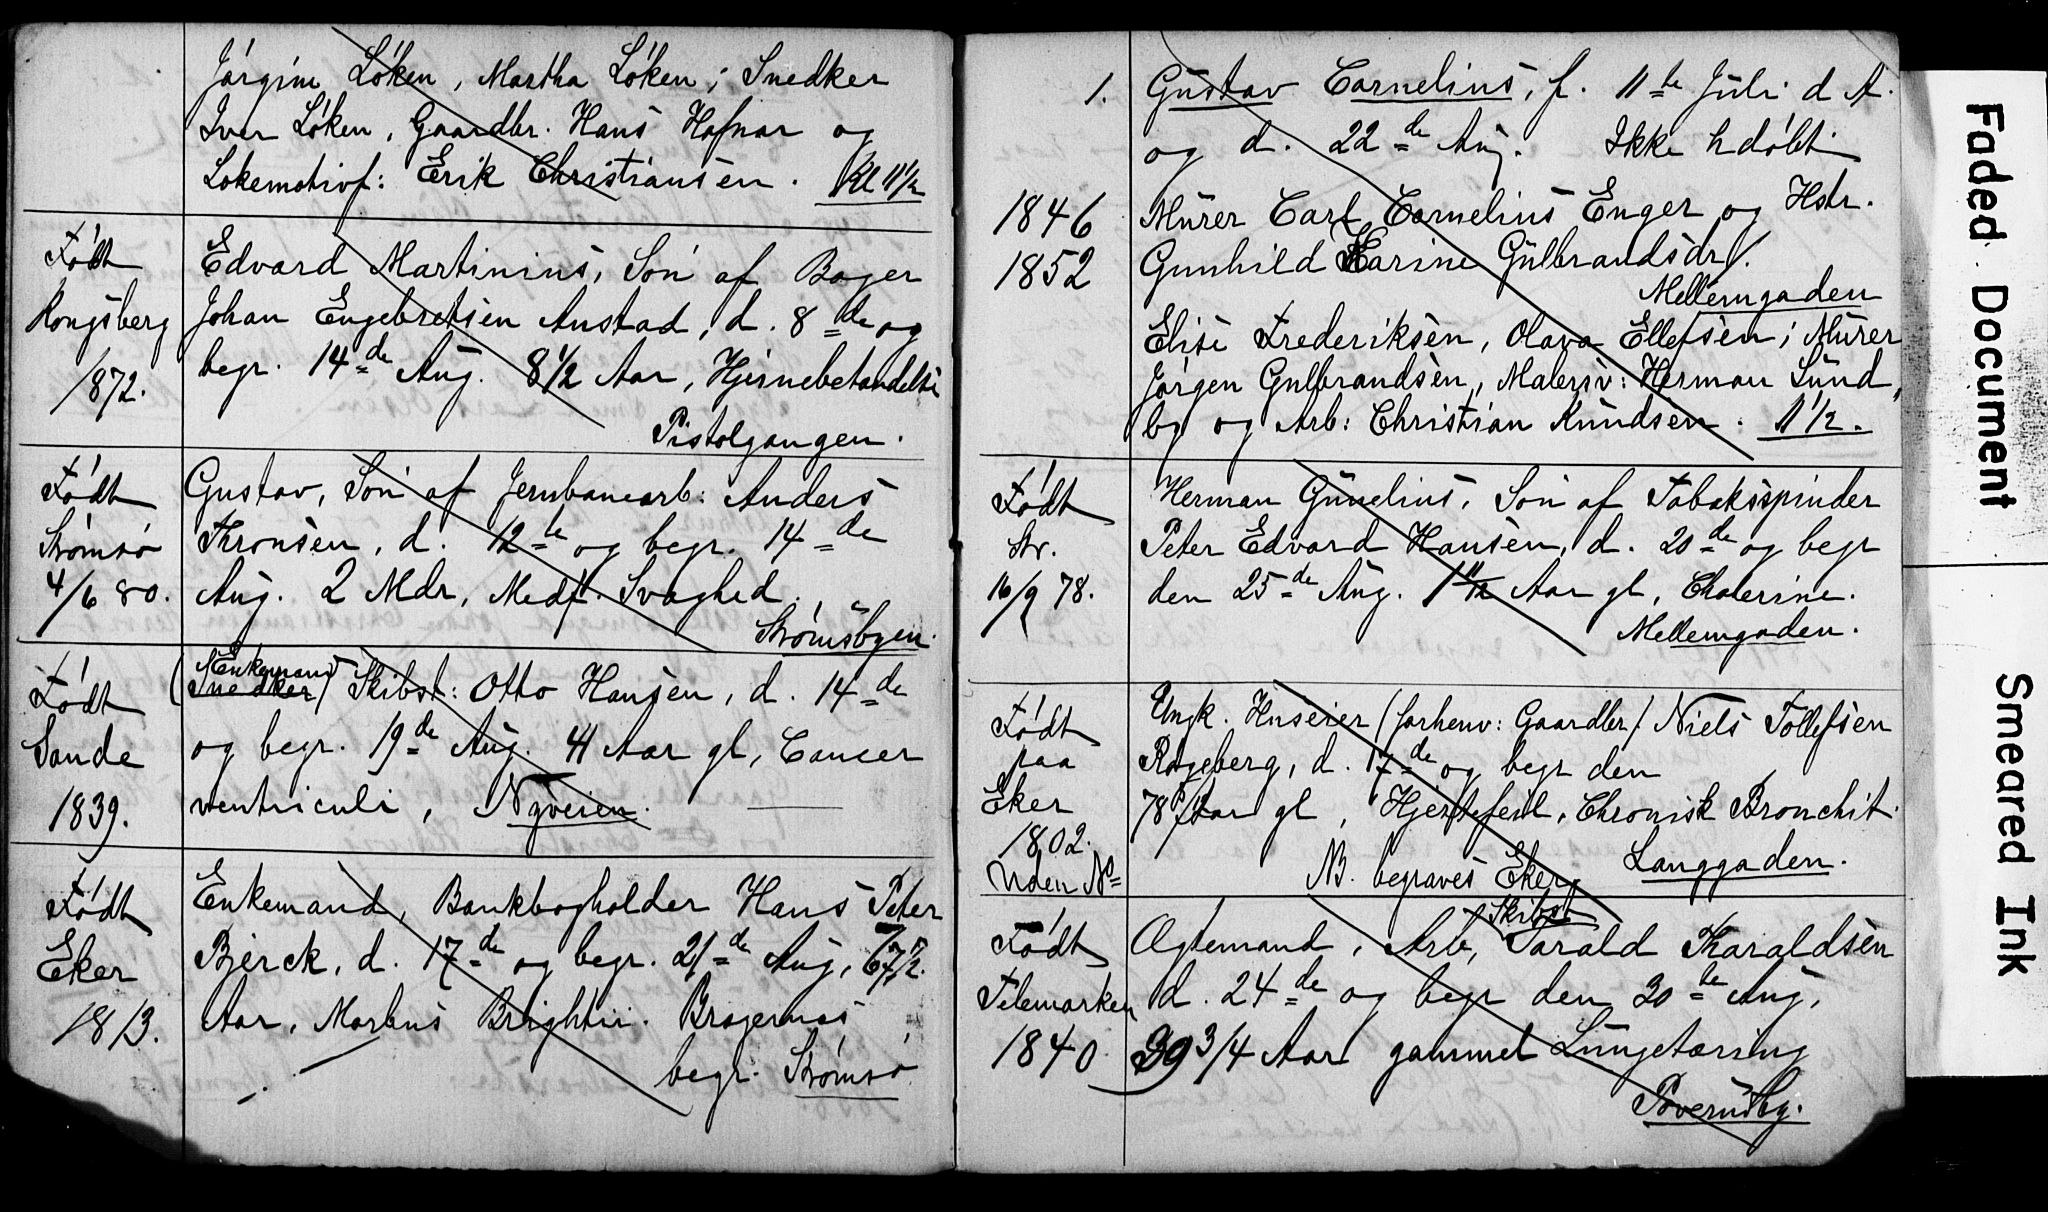 Jørgine Løken, Martha Løken; Snedker
Iver Løken, Gaardbr. Hans Hofnar og
Lokomotivf: Erik Christiansen. Kl 11 1/2
Født
Kongsberg
1872.
Edvard Martinius, Søn af Bager
Johan Engebretsen Anstad, d. 8de og
begr. 14de Aug. 8 1/2 Aar, Hjernebetændelse
Pistolgangen.
Født
Strømsø
4/6 80.
Gustav, Søn af Jernbanearb: Anders
Thronsen, d. 12te og begr. 14de
Aug. 2 Mdr, Medf. Svaghed.
Strømsbyen.
Født
Sande
1839.
Enkemand
(Snedker) Skibst: Otto Hansen, d. 14de
og begr. 19de Aug. 41 Aar gl, Cancer
ventriculi, Nyveien.
Født
Eker
1813.
Enkemand, Bankbogholder Hans Peter
Bjerck, d. 17de og begr. 21de Aug, 67 1/2
Aar, Morbus Brightii. Bragernæs
begr. Strømsø
1. Gustav Cornelius, f. 11te Juli d A.
og d. 22de Aug. Ikke hdøbt
1846 Murer Carl Cornelius Enger og Hstr.
1852 Gunhild Karine Gulbrandsdr.
Mellemgaden
Elise Frederiksen, Olava Ellefsen; Murer
Jørgen Gulbrandsen, Malersv: Herman Sund
by og Arb: Christian Knudsen. 11 1/2.
Født
Str.
16/9 78.
Herman Gunelius, Søn af Tobaksspinder
Peter Edvard Hansen, d. 20de og begr
den 25de Aug. 1 11/12 Aar gl, Cholerine.
Mellemgaden.
Født
paa
Eker
1802.
Uden No
Ungk. Huseier (forhenv: Gaardbr) Niels Tollefsen
Rogeberg, d. 17de og begr den
78 Aar gl, Hjertefeil, Chronisk Bronchit.
NB. begraves Eker Langgaden.
Født
Telemarken
1840
Skibs
Ægtemand, Arb, Tarald Tharaldsen
d. 24de og begr den 30te Aug,
39 3/4 Aar gammel Lungetæring
Toverudbg.
Faded Document
Smeared Ink